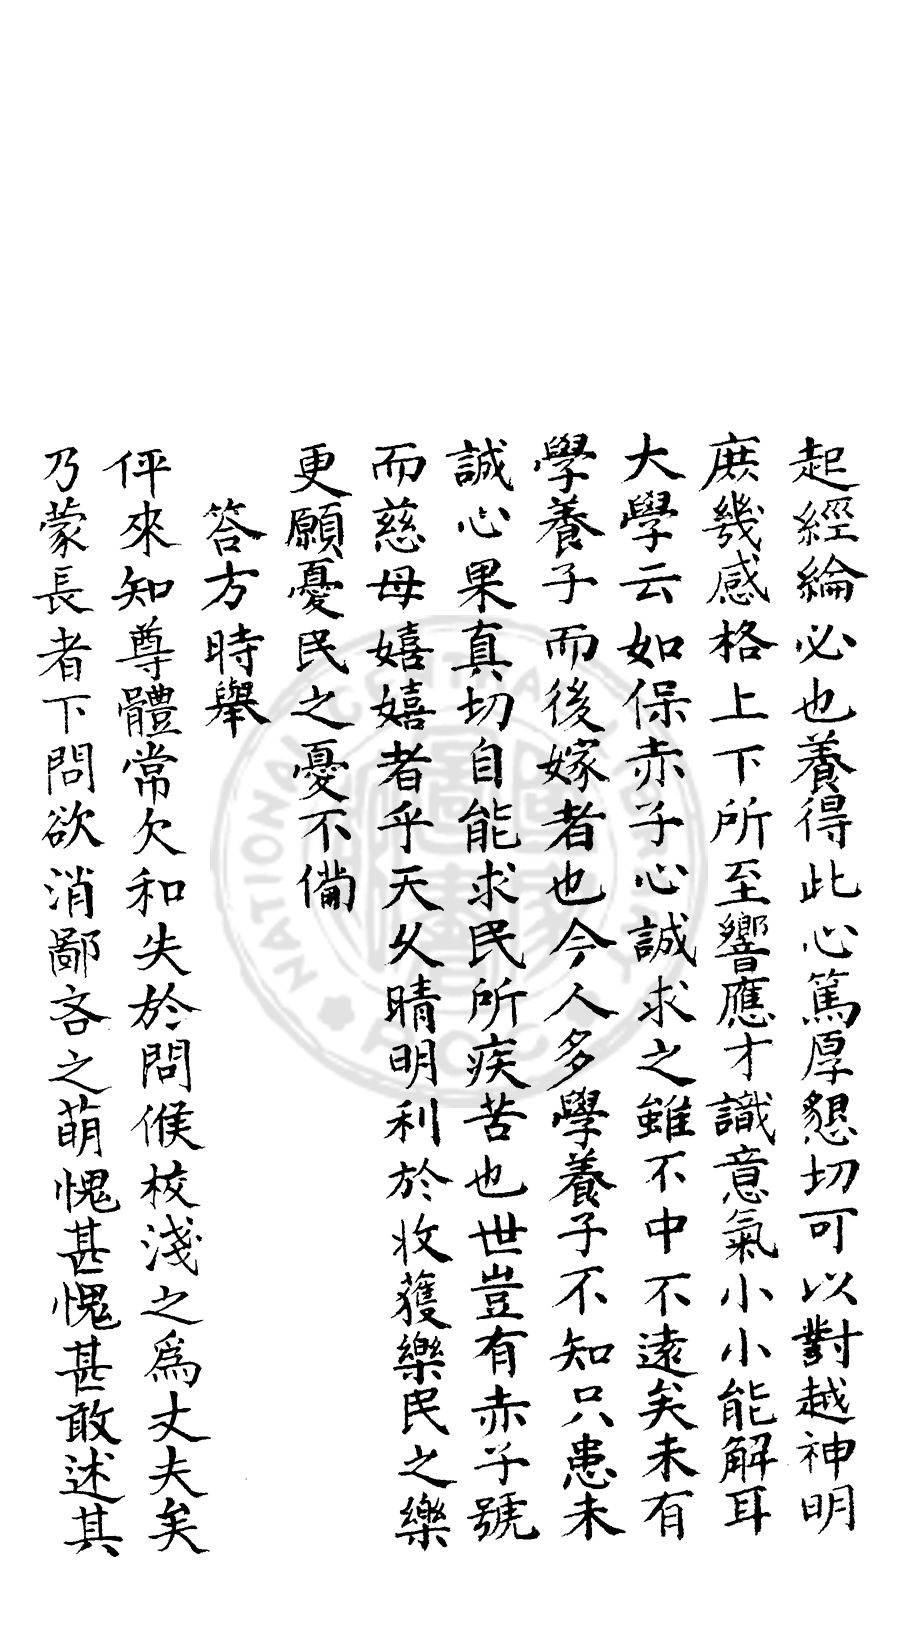 起經綸必也養得此心篤厚懇切可以對越神明
庶幾感格上下所至響應才識意氣小小能解耳
大學云如保赤子心誠求之雖不中不遠矣未有
學養子而後嫁者也今人多學養子不知只患未
誠心果真切自能求民所疾苦也世豈有赤子號
而慈母嬉嬉者乎天久晴明利於收獲樂民之樂
更願憂民之憂不備
答方時舉
伻來知尊體常欠和失於問候校淺之為丈夫矣
乃蒙長者下問欲消鄙吝之萌愧甚愧甚敢述其
NATIONAL CENTRAL LIBRARY
R.O.C.
國家圖書館